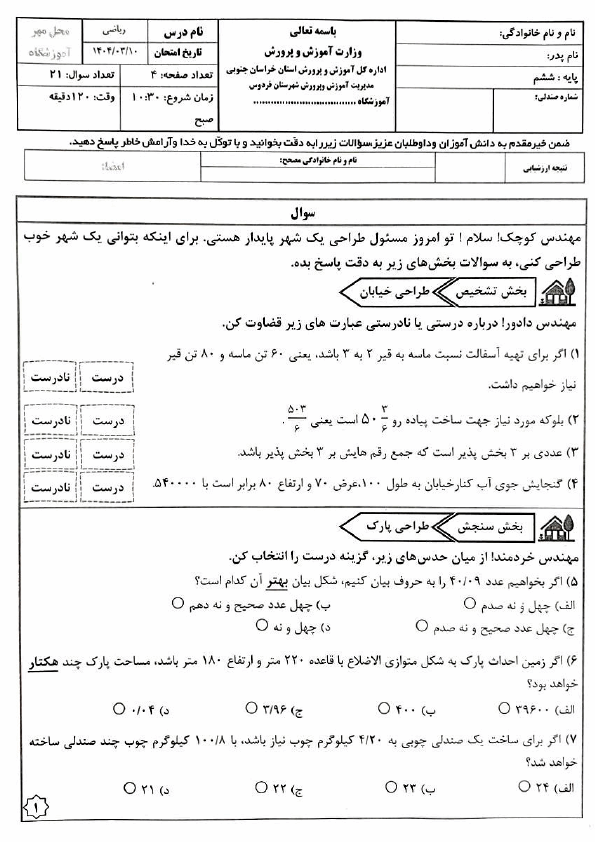 باسمه تعالی
وزارت آموزش و پرورش
اداره کل آموزش و پرورش استان خراسان جنوبی
مدیریت آموزش وپرورش شهرستان فردوس
آموزشگاه ....................................
نام و نام خانوادگی:
نام پدر:
پایه : ششم
شماره صندلی:
نام درس ریاضی
تاریخ امتحان ۱۴۰۴/۰۳/۱۰
تعداد صفحه: ۴ تعداد سوال: ۲۱
زمان شروع: ۱۰:۳۰ صبح
وقت: ۱۲۰دقیقه
محل مهر
آموزشگاه
ضمن خیرمقدم به دانش آموزان وداوطلبان عزیز،سؤالات زیررابه دقت بخوانید و با توکّل به خدا وآرامش خاطر پاسخ دهید.
نتیجه ارزشیابی نام و نام خانوادگی مصحح: امضا:
سوال
مهندس کوچک! سلام ! تو امروز مسئول طراحی یک شهر پایدار هستی. برای اینکه بتوانی یک شهر خوب
طراحی کنی، به سوالات بخش‌های زیر به دقت پاسخ بده.
بخش تشخیص طراحی خیابان
مهندس دادور! درباره درستی یا نادرستی عبارت های زیر قضاوت کن.
۱) اگر برای تهیه آسفالت نسبت ماسه به قیر ۲ به ۳ باشد، یعنی ۶۰ تن ماسه و ۸۰ تن قیر
نیاز خواهیم داشت. درست نادرست
۲) بلوکه مورد نیاز جهت ساخت پیاده رو ۵۰ ۳/۶ است یعنی ۵۰۳/۶ . درست نادرست
۳) عددی بر ۳ بخش پذیر است که جمع رقم هایش بر ۳ بخش پذیر باشد. درست نادرست
۴) گنجایش جوی آب کنارخیابان به طول ۱۰۰،عرض ۷۰ و ارتفاع ۸۰ برابر است با ۵۴۰۰۰۰. درست نادرست
بخش سنجش طراحی پارک
مهندس خردمند! از میان حدس‌های زیر، گزینه درست را انتخاب کن.
۵) اگر بخواهیم عدد ۴۰/۰۹ را به حروف بیان کنیم، شکل بیان بهتر آن کدام است؟
الف) چهل و نه صدم ب) چهل عدد صحیح و نه دهم
ج) چهل عدد صحیح و نه صدم د) چهل و نه
۶) اگر زمین احداث پارک به شکل متوازی الاضلاع با قاعده ۲۲۰ متر و ارتفاع ۱۸۰ متر باشد، مساحت پارک چند هکتار
خواهد بود؟
الف) ۳۹۶۰۰ ب) ۴۰۰ ج) ۳/۹۶ د) ۰/۰۴
۷) اگر برای ساخت یک صندلی چوبی به ۴/۲۰ کیلوگرم چوب نیاز باشد، با ۱۰۰/۸ کیلوگرم چوب چند صندلی ساخته
خواهد شد؟
الف) ۲۴ ب) ۲۳ ج) ۲۲ د) ۲۱
۱